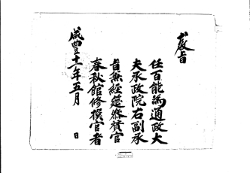 敎旨
任百能爲通政大
夫承政院右副承
旨兼經筵參贊官
春秋館修撰官者
咸豊十一年五月 日